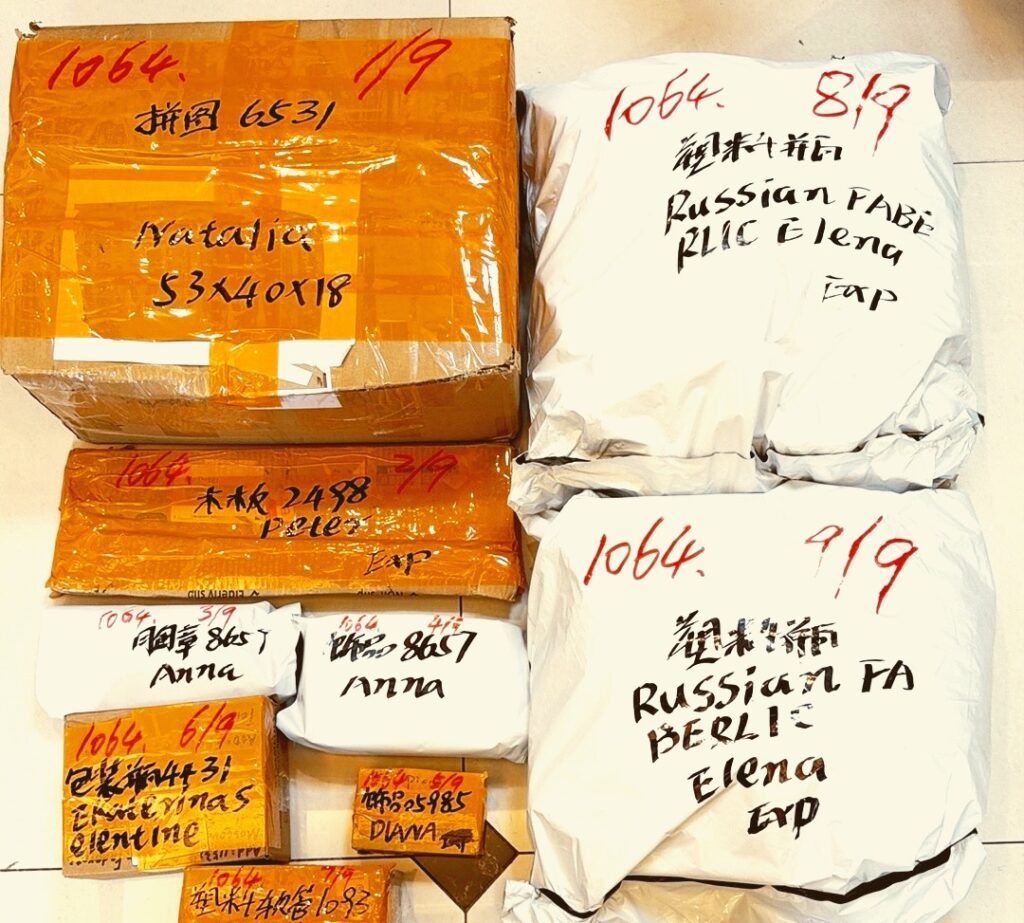 1064. 1/9
拼图 6531
Natalia
53X40X18
1064. 2/9
木板 2498
Peter
Exp
1064. 3/9
胸章 8657
Anna
1064. 4/9
饰品 8657
Anna
1064 5/9
饰品 5985
DIANA
1064. 6/9
包装瓶 4431
Ekaterinas
elentine
1064. 7/9
塑料软管 1093
1064. 8/9
塑料瓶
Russian FABE
RLIC Elena
Exp
1064. 9/9
塑料瓶
Russian FA
BERLIC
Elena
Exp